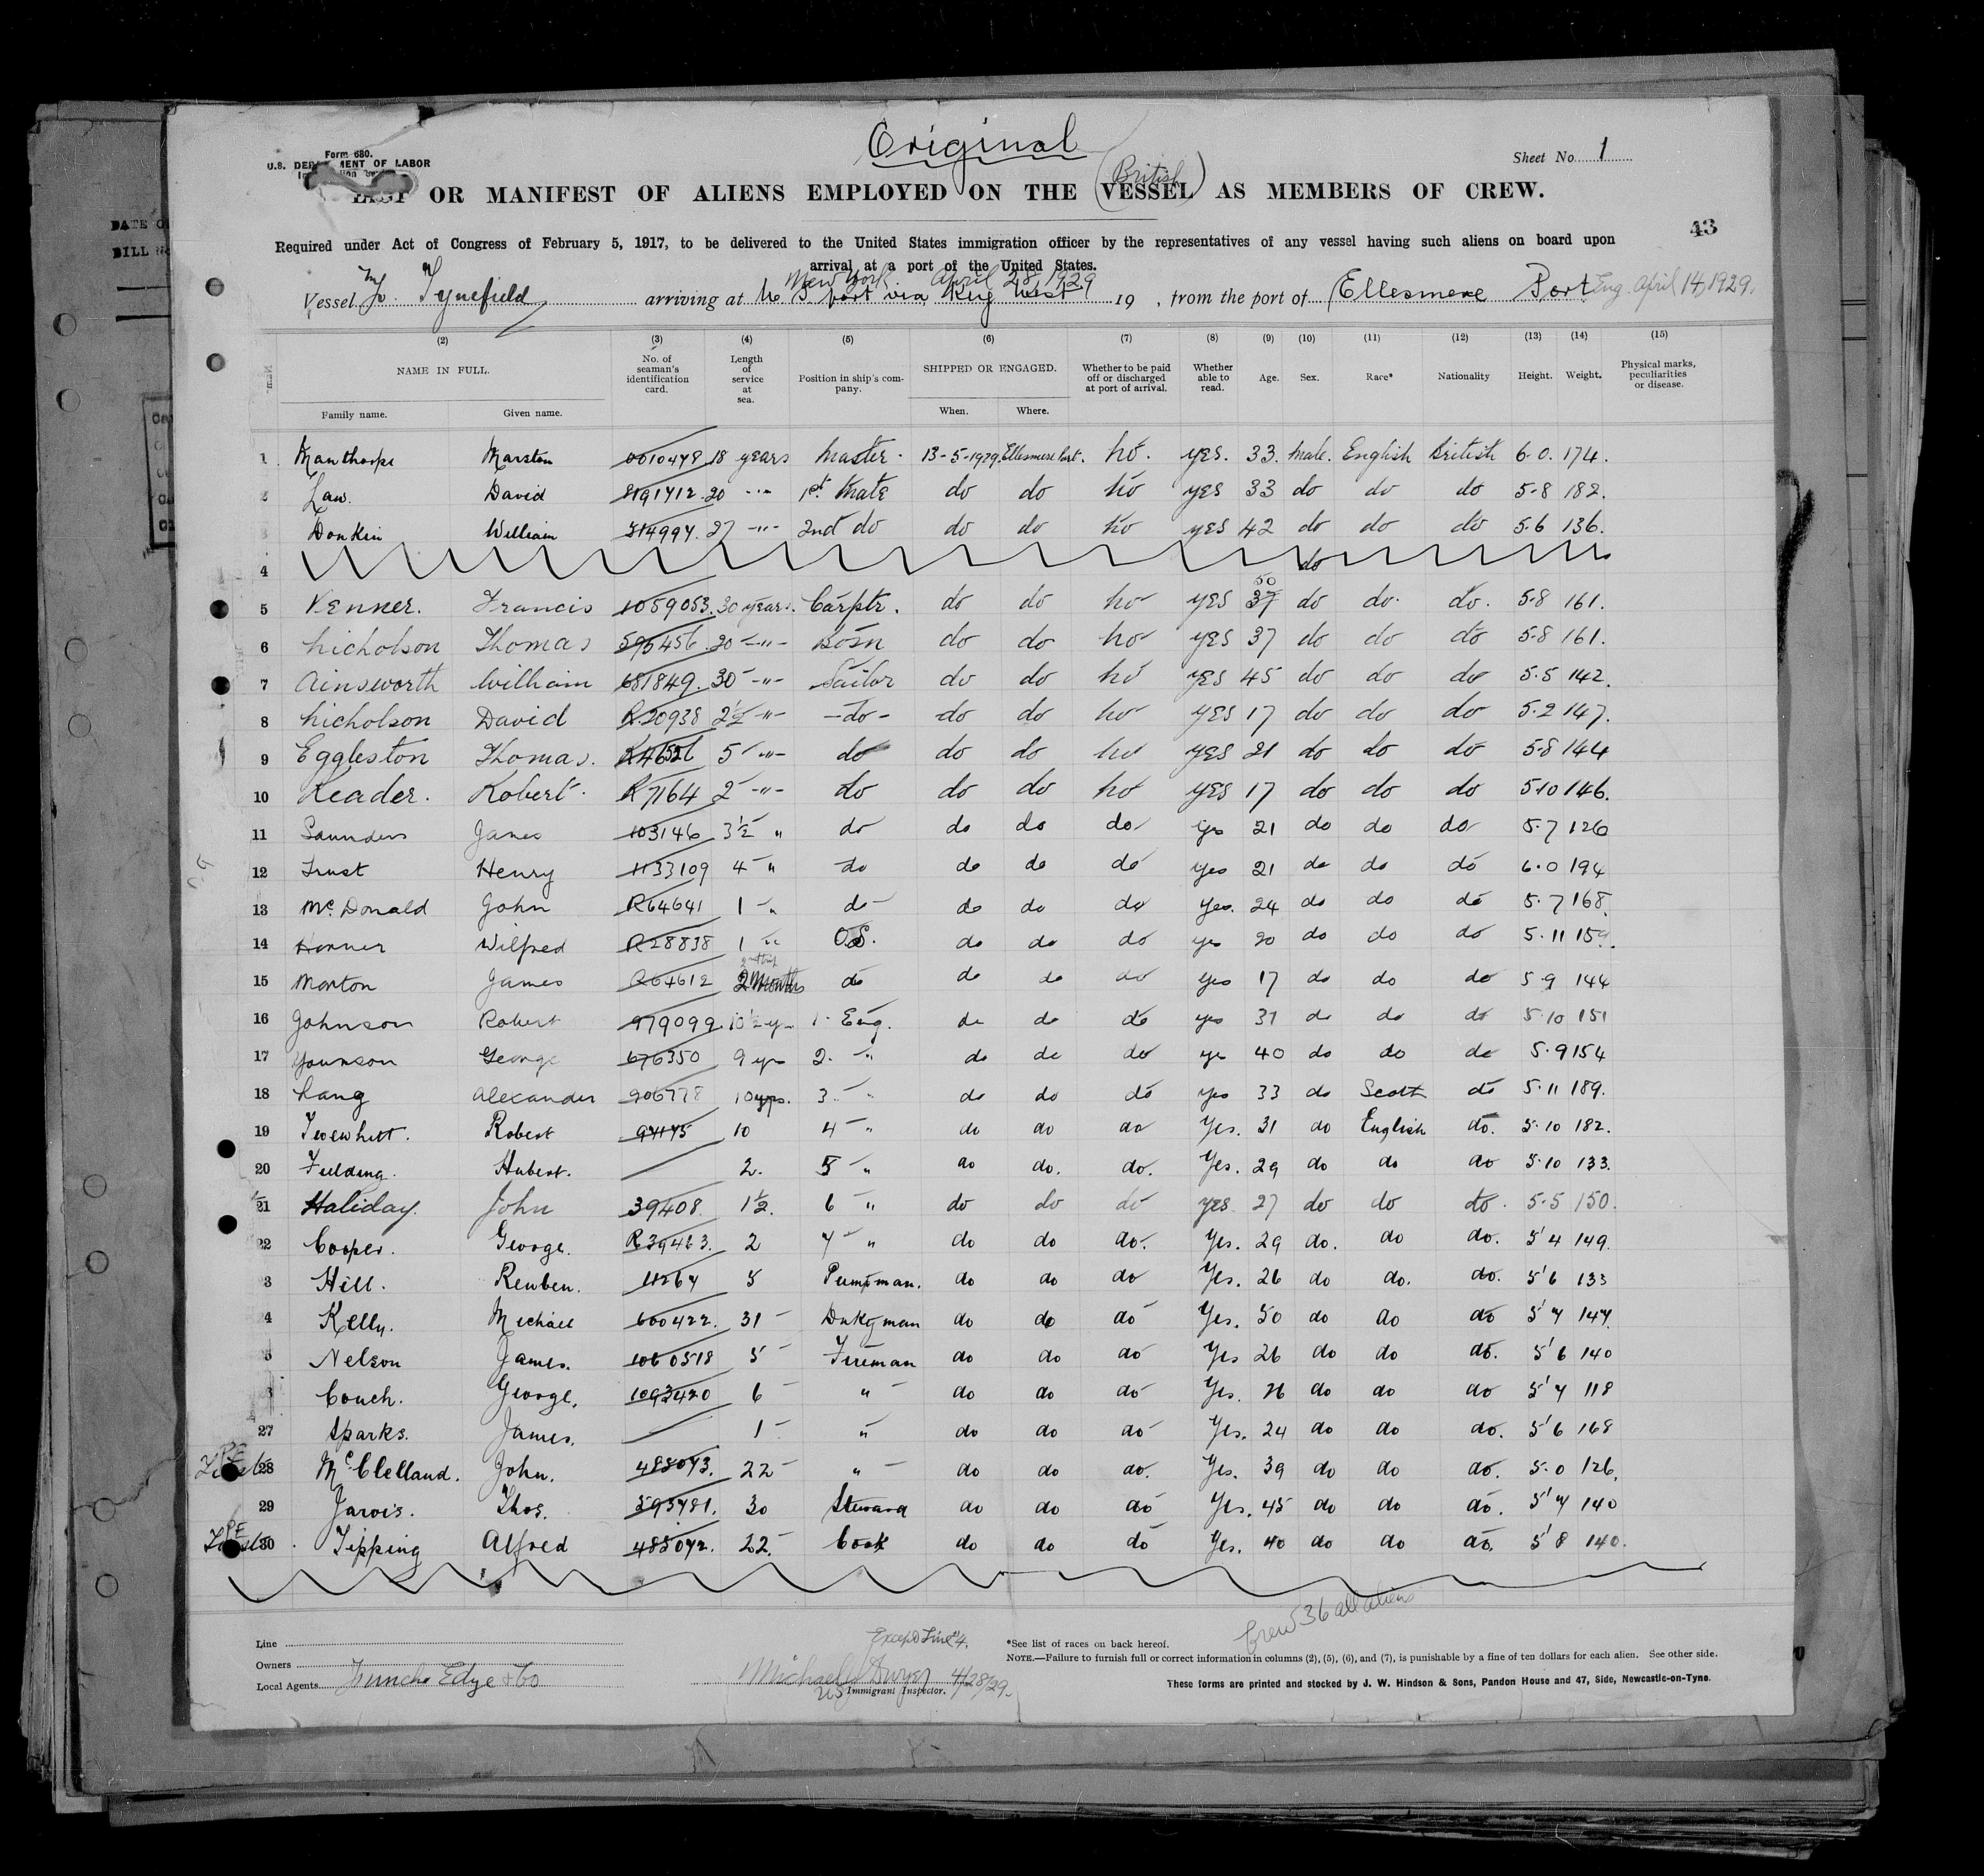 Original
Form 680.
U.S. DEPARTMENT OF LABOR
Sheet No. 1
(British)
LIST OR MANIFEST OF ALIENS EMPLOYED ON THE VESSEL AS MEMBERS OF CREW.
43
Required under Act of Congress of February 5, 1917, to be delivered to the United States immigration officer by the representatives of any vessel having such aliens on board upon
arrival at a port of the United States.
New York April 28, 1929
Vessel Tynefield arriving at U S port via Key West 19 , from the port of Ellesmere Port Eng. April 14, 1929.
(2) (3) (4) (5) (6) (7) (8) (9) (10) (11) (12) (13) (14) (15)
NAME IN FULL. No. of seaman's identification card. Length of service at sea. Position in ship's company. SHIPPED OR ENGAGED. Whether to be paid off or discharged at port of arrival. Whether able to read. Age. Sex. Race* Nationality Height. Weight. Physical marks, peculiarities or disease.
Family name. Given name. When. Where.
1 Manthorpe Marston 0010478 18 years Master 13-5-1929 Ellesmere Port. No. yes. 33. Male. English British 6.0. 174.
Law. David 8191712 20 -"- 1st Mate do do No yes 33 do do do 5-8 182.
Donkin William 314994. 27 -"- 2nd do do do No yes 42 do do do 5.6 136.
4 do
5 Venner. Francis 1059053. 30 years. Carptr. do do No yes 37 50 do do. do. 5-8 161.
6 Nicholson Thomas 596456. 20 -"- Bosn do do No yes 37 do do do 5-8 161.
7 Ainsworth William 681849. 30 -"- Sailor do do No yes 45 do do do 5.5 142.
8 Nicholson David R.20938 2½ -"- -do- do do No yes 17 do do do 5.2 147.
9 Eggleston Thomas. 5 -"- do do do No yes 21 do do do 5-8 144
10 Reader. Robert. R7164 2 -"- do do do No yes 17 do do do 5-10 146.
11 Saunders James 103146 3½ " do do do do yes 21 do do do 5.7 126
12 Trust Henry 1133109 4 " do do do do yes 21 do do do 6.0 194
13 McDonald John R64641 1 " do do do do yes. 24 do do do 5.7 168.
14 Horner Wilfred R28838 1 " O.S. do do do yes 20 do do do 5.11
15 Morton James R64612 2 Months do do do do yes 17 do do do 5.9 144
16 Johnson Robert 979099. 10½ yr 1. Eng. do do do yes 31 do do do 5.10 151
17 Younson George 676350 9 yrs 2. " do do do ye 40 do do do 5.9 154
18 Lang Alexander 906778 10 yrs. 3 " do do do yes 33 do Scott do 5.11 189.
19 Twewhitt. Robert 10 4 " do do do Yes. 31 do English do. 5.10 182.
20 Fielding. Hubert. 2. 5 " do do. do. Yes. 29 do do do 5.10 133.
21 Haliday. John 39408. 1½. 6 " do do do yes 27 do do do. 5.5 150.
22 Cooper. George. R39463. 2 7 " do do do. Yes. 29 do. do do. 5'4 149.
3 Hill. Reuben. 11264 5 Pumpman. do do do Yes. 26 do do. do. 5'6 133
4 Kelly. Michael 600422. 31 Dnkyman do do do Yes. 50 do do do 5'7 147.
5 Nelson James. 1060518 5 Fireman do do do Yes 26 do do do. 5'6 140
Couch. George, 1093420 6 " do do do Yes. 26 do do do 5'7 118
27 Sparks. James, 1 " do do do Yes. 24 do do do. 5'6 168
28 McClelland. John. 485073. 22 " do do do. Yes. 39 do do do. 5.0 126.
29 Jarvis. Thos. 593781. 30 Steward do do do Yes. 45 do do do. 5'7 140
30 Tipping Alfred 485072. 22. Cook do do do Yes. 40 do do do. 5'8 140.
Crew 36 all aliens
Except Line 4.
Line
Owners
Local Agents Edye & Co
Michael J Dwyer 4/28/29.
US Immigrant Inspector.
*See list of races on back hereof.
NOTE.—Failure to furnish full or correct information in columns (2), (5), (6), and (7), is punishable by a fine of ten dollars for each alien. See other side.
These forms are printed and stocked by J. W. Hindson & Sons, Pandon House and 47, Side, Newcastle-on-Tyne.